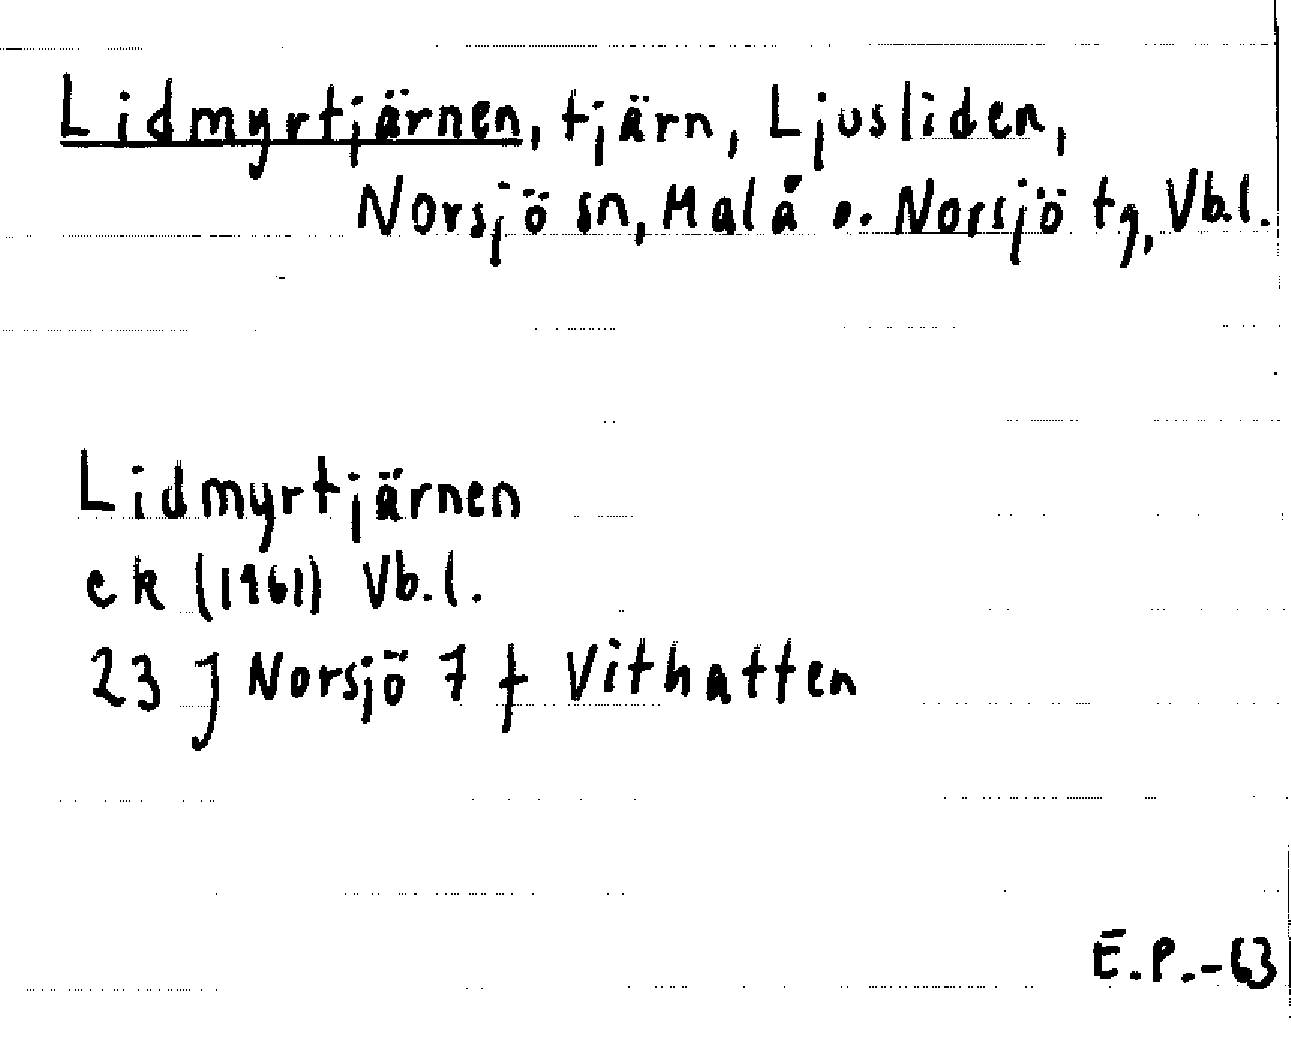 Lidmyrtjärnen, tjärn, Ljusliden,
Norsjö sn, Malå o. Norsjö tg, Vb.l.
Lidmyrtjärnen
ek (1961) Vb.l.
23 J Norsjö 7 f Vithatten
E.P.-63